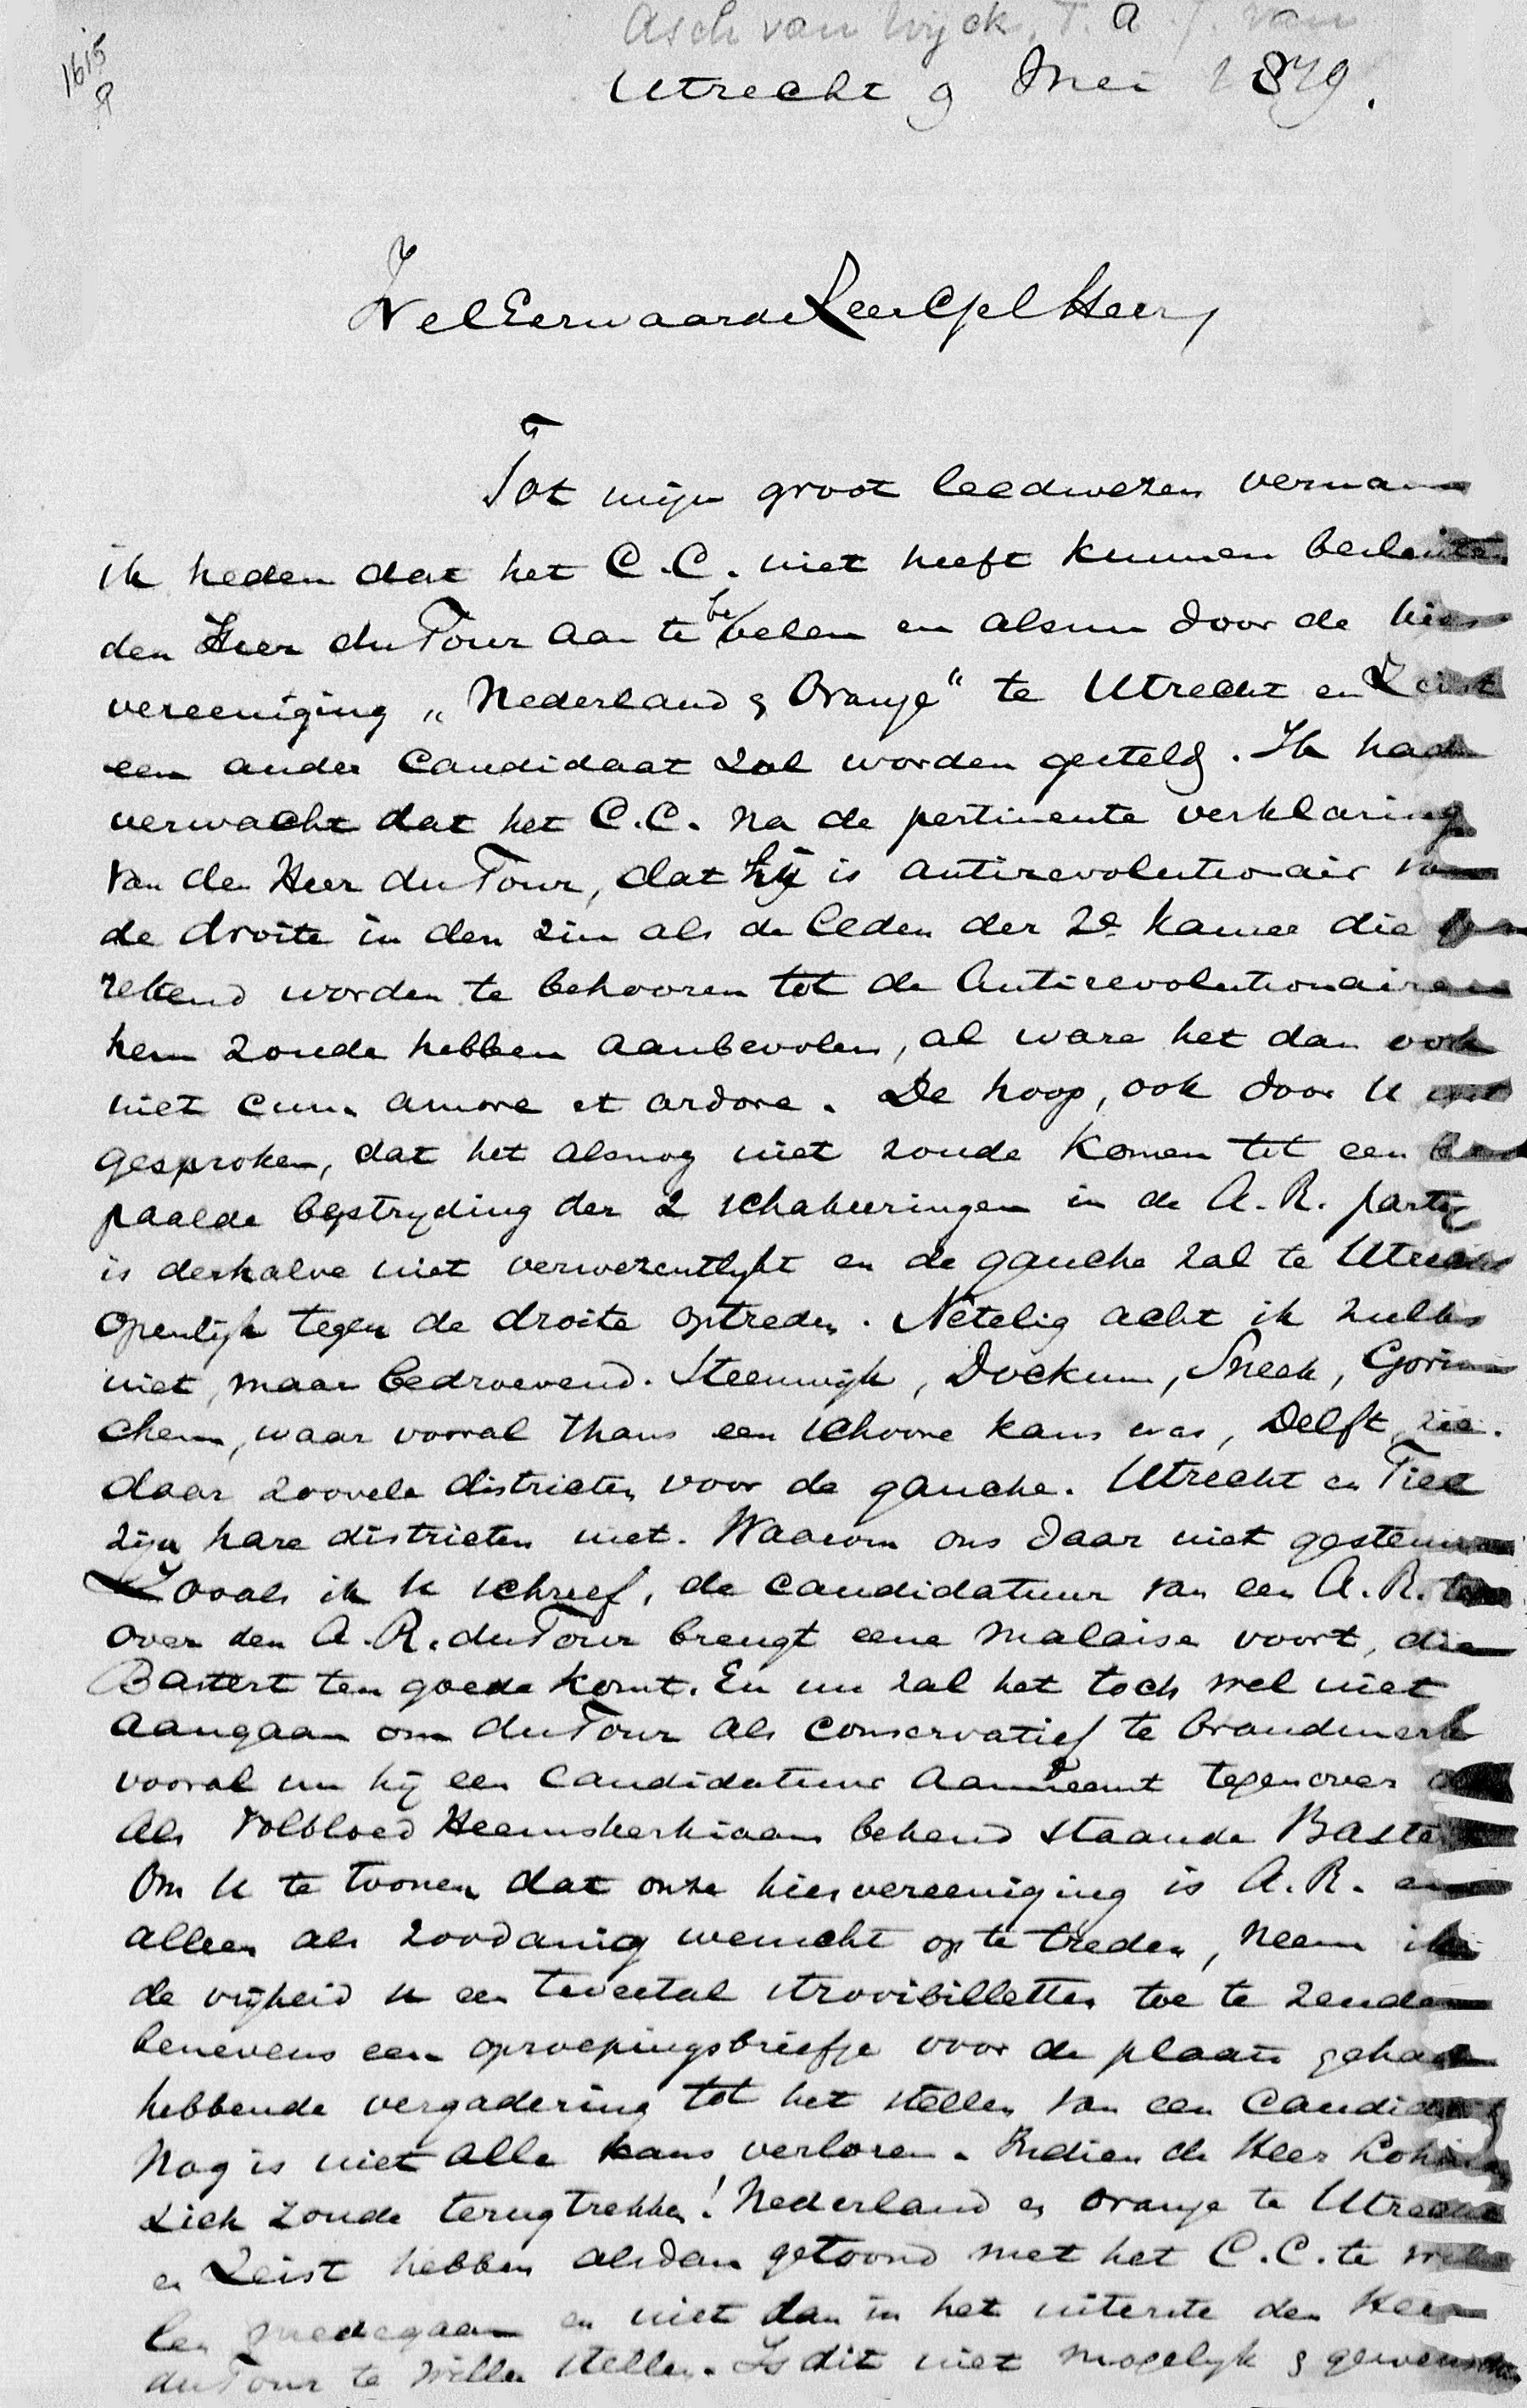 Asch van Wyck, T. a. J. van
1615
Utrecht 9 Mei 1879.
WelEerwaarde ZeerGelHeer,
Tot mijn groot leedwezen vernam
ik heden dat het C.C. niet heeft kunnen besluiten
den Heer du Tour aan te bevelen en alsnu door de kies
vereeniging „Nederland & Oranje" te Utrecht en Zeist
een ander Candidaat zal worden gesteld. Ik had
verwacht dat het C.C. na de pertinente verklaring
van den Heer du Tour, dat hij is antirevolutionair van
de droite in den zin als de leden der 2e Kamer die
rekend worden te behooren tot de Antirevolutionairen
hem zoude hebben aanbevolen, al ware het dan ook
niet cum amore et ardore. De hoop, ook door U
gesproken, dat het alsnog niet zoude komen tot een be
paalde bestryding der 2 schakeeringen in de A.R. partij
is derhalve niet verwezentlykt en de gauche zal te Utrecht
openlijk tegen de droite optreden. Netelig acht ik zulks
niet, maar bedroevend. Steenwijk, Dockum, Sneek, Gorin
chem, waar vooral thans een schoone kans was, Delft, zie
daar zoovele districten voor de gauche. Utrecht en Tiel
zijn hare districten niet. Waarom ons daar niet gesteund
Zooals ik U schreef, de candidatuur van een A.R. tegen
over den A.R. du Tour brengt eene malaise voort, die
Bastert ten goede komt. En nu zal het toch wel niet
aangaan om du Tour als conservatief te brandmerk
vooral nu hij een Candidatuur aanneemt tegenover
als volbloed Heemskerkiaan bekend staande Baste
Om U te toonen dat onze kiesvereeniging is A.R. en
alleen als zoodanig wenscht op te treden, neem ik
de vrijheid U een tweetal strooibilletten toe te zenden
benevens een oproepingsbriefje voor de plaats gehad
hebbende vergadering tot het stellen van een Candidaat
Nog is niet alle kans verloren. Indien de Heer Lohman
zich zoude terugtrekken! Nederland en Oranje te Utrecht
en Zeist hebben alsdan getoond met het C.C. te wil
len medegaan en niet dan in het uiterste den Heer
du Tour te willen stellen. Is dit niet mogelyk & gewenscht